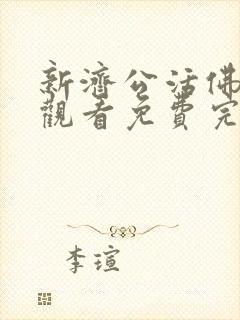 新濟公活佛
觀看免費完
李瑄